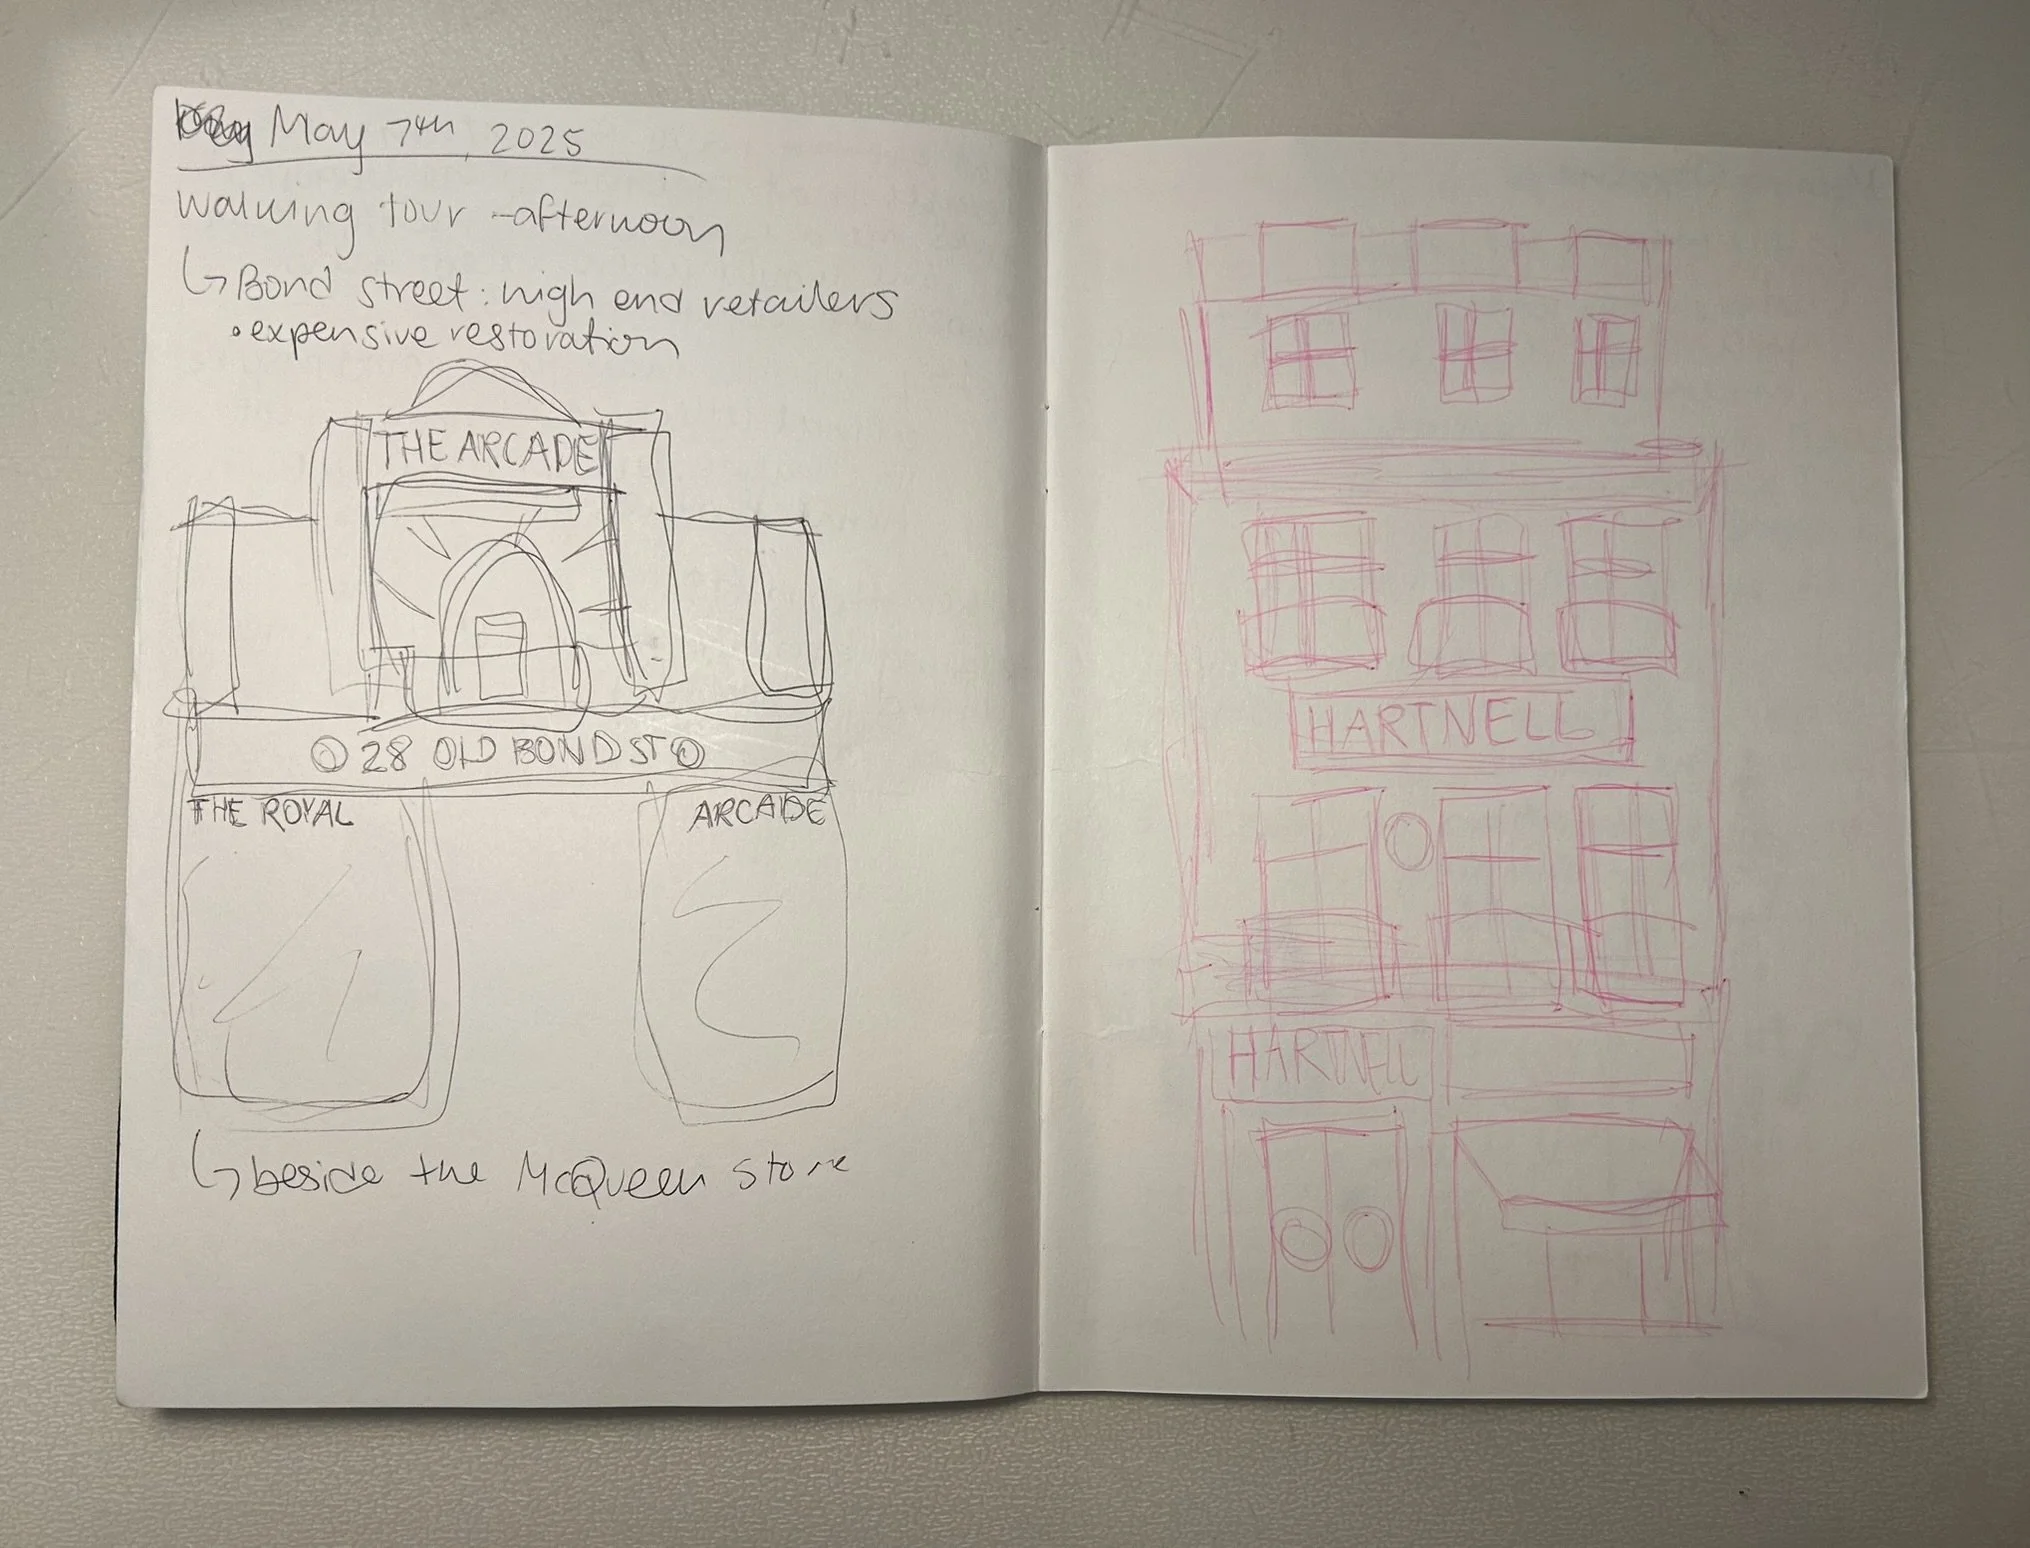 May 7th, 2025
walking tour - afternoon
↳ Bond street: high end retailers
• expensive restoration
THE ARCADE
28 OLD BOND ST
THE ROYAL ARCADE
↳ beside the McQueen store
HARTNELL
HARTNELL